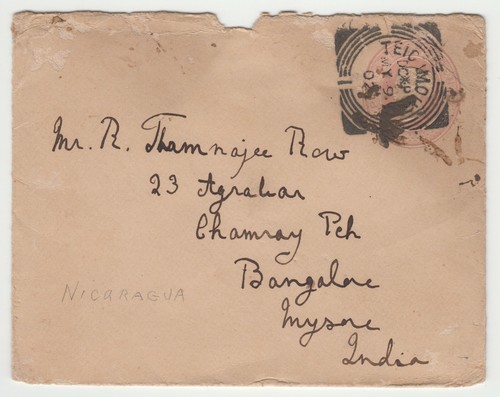 TEIGNMOUTH
MY 9
02
Mr. R. Thamnajee Row
23 Agrahar
Chamray Peh
Bangalore
Mysore
India
NICARAGUA